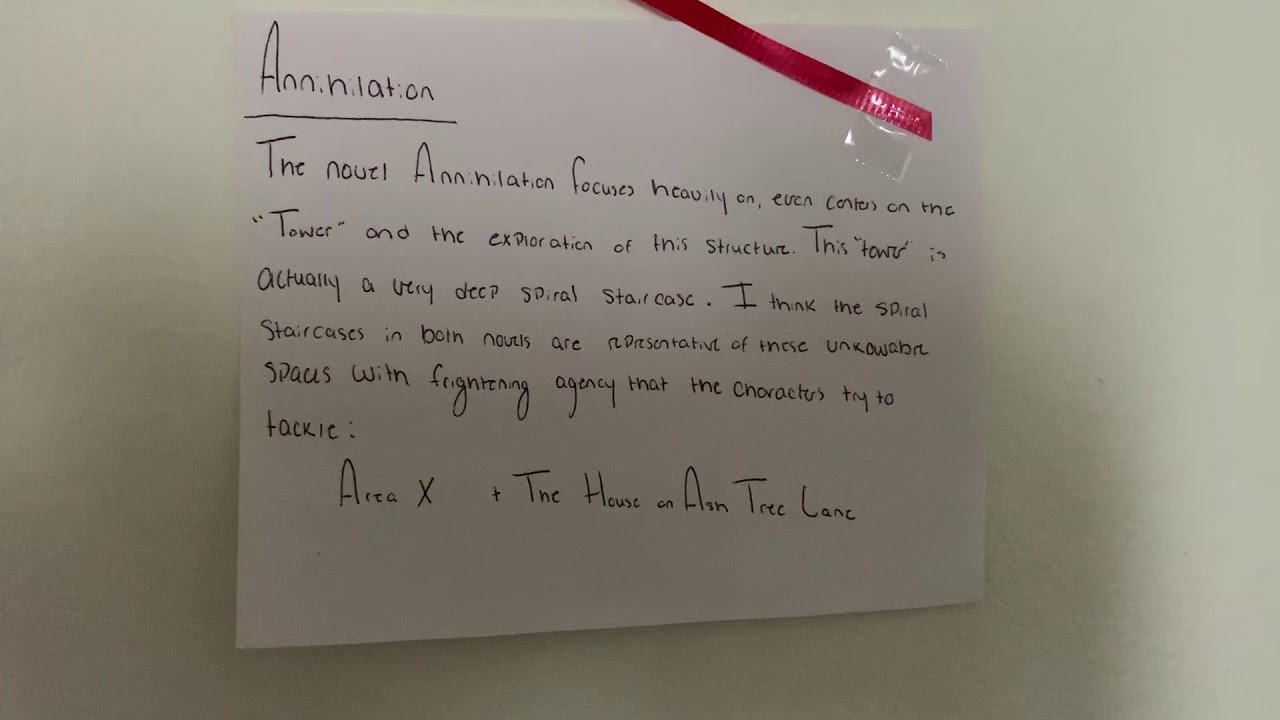 Annihilation
The novel Annihilation focuses heavily on, even centers on the
"Tower" and the exploration of this structure. This "tower" is
actually a very deep spiral staircase. I think the spiral
staircases in both novels are representative of these unkowable
spaces with frightening agency that the characters try to
tackle:
Area X + The House on Ash Tree Lane